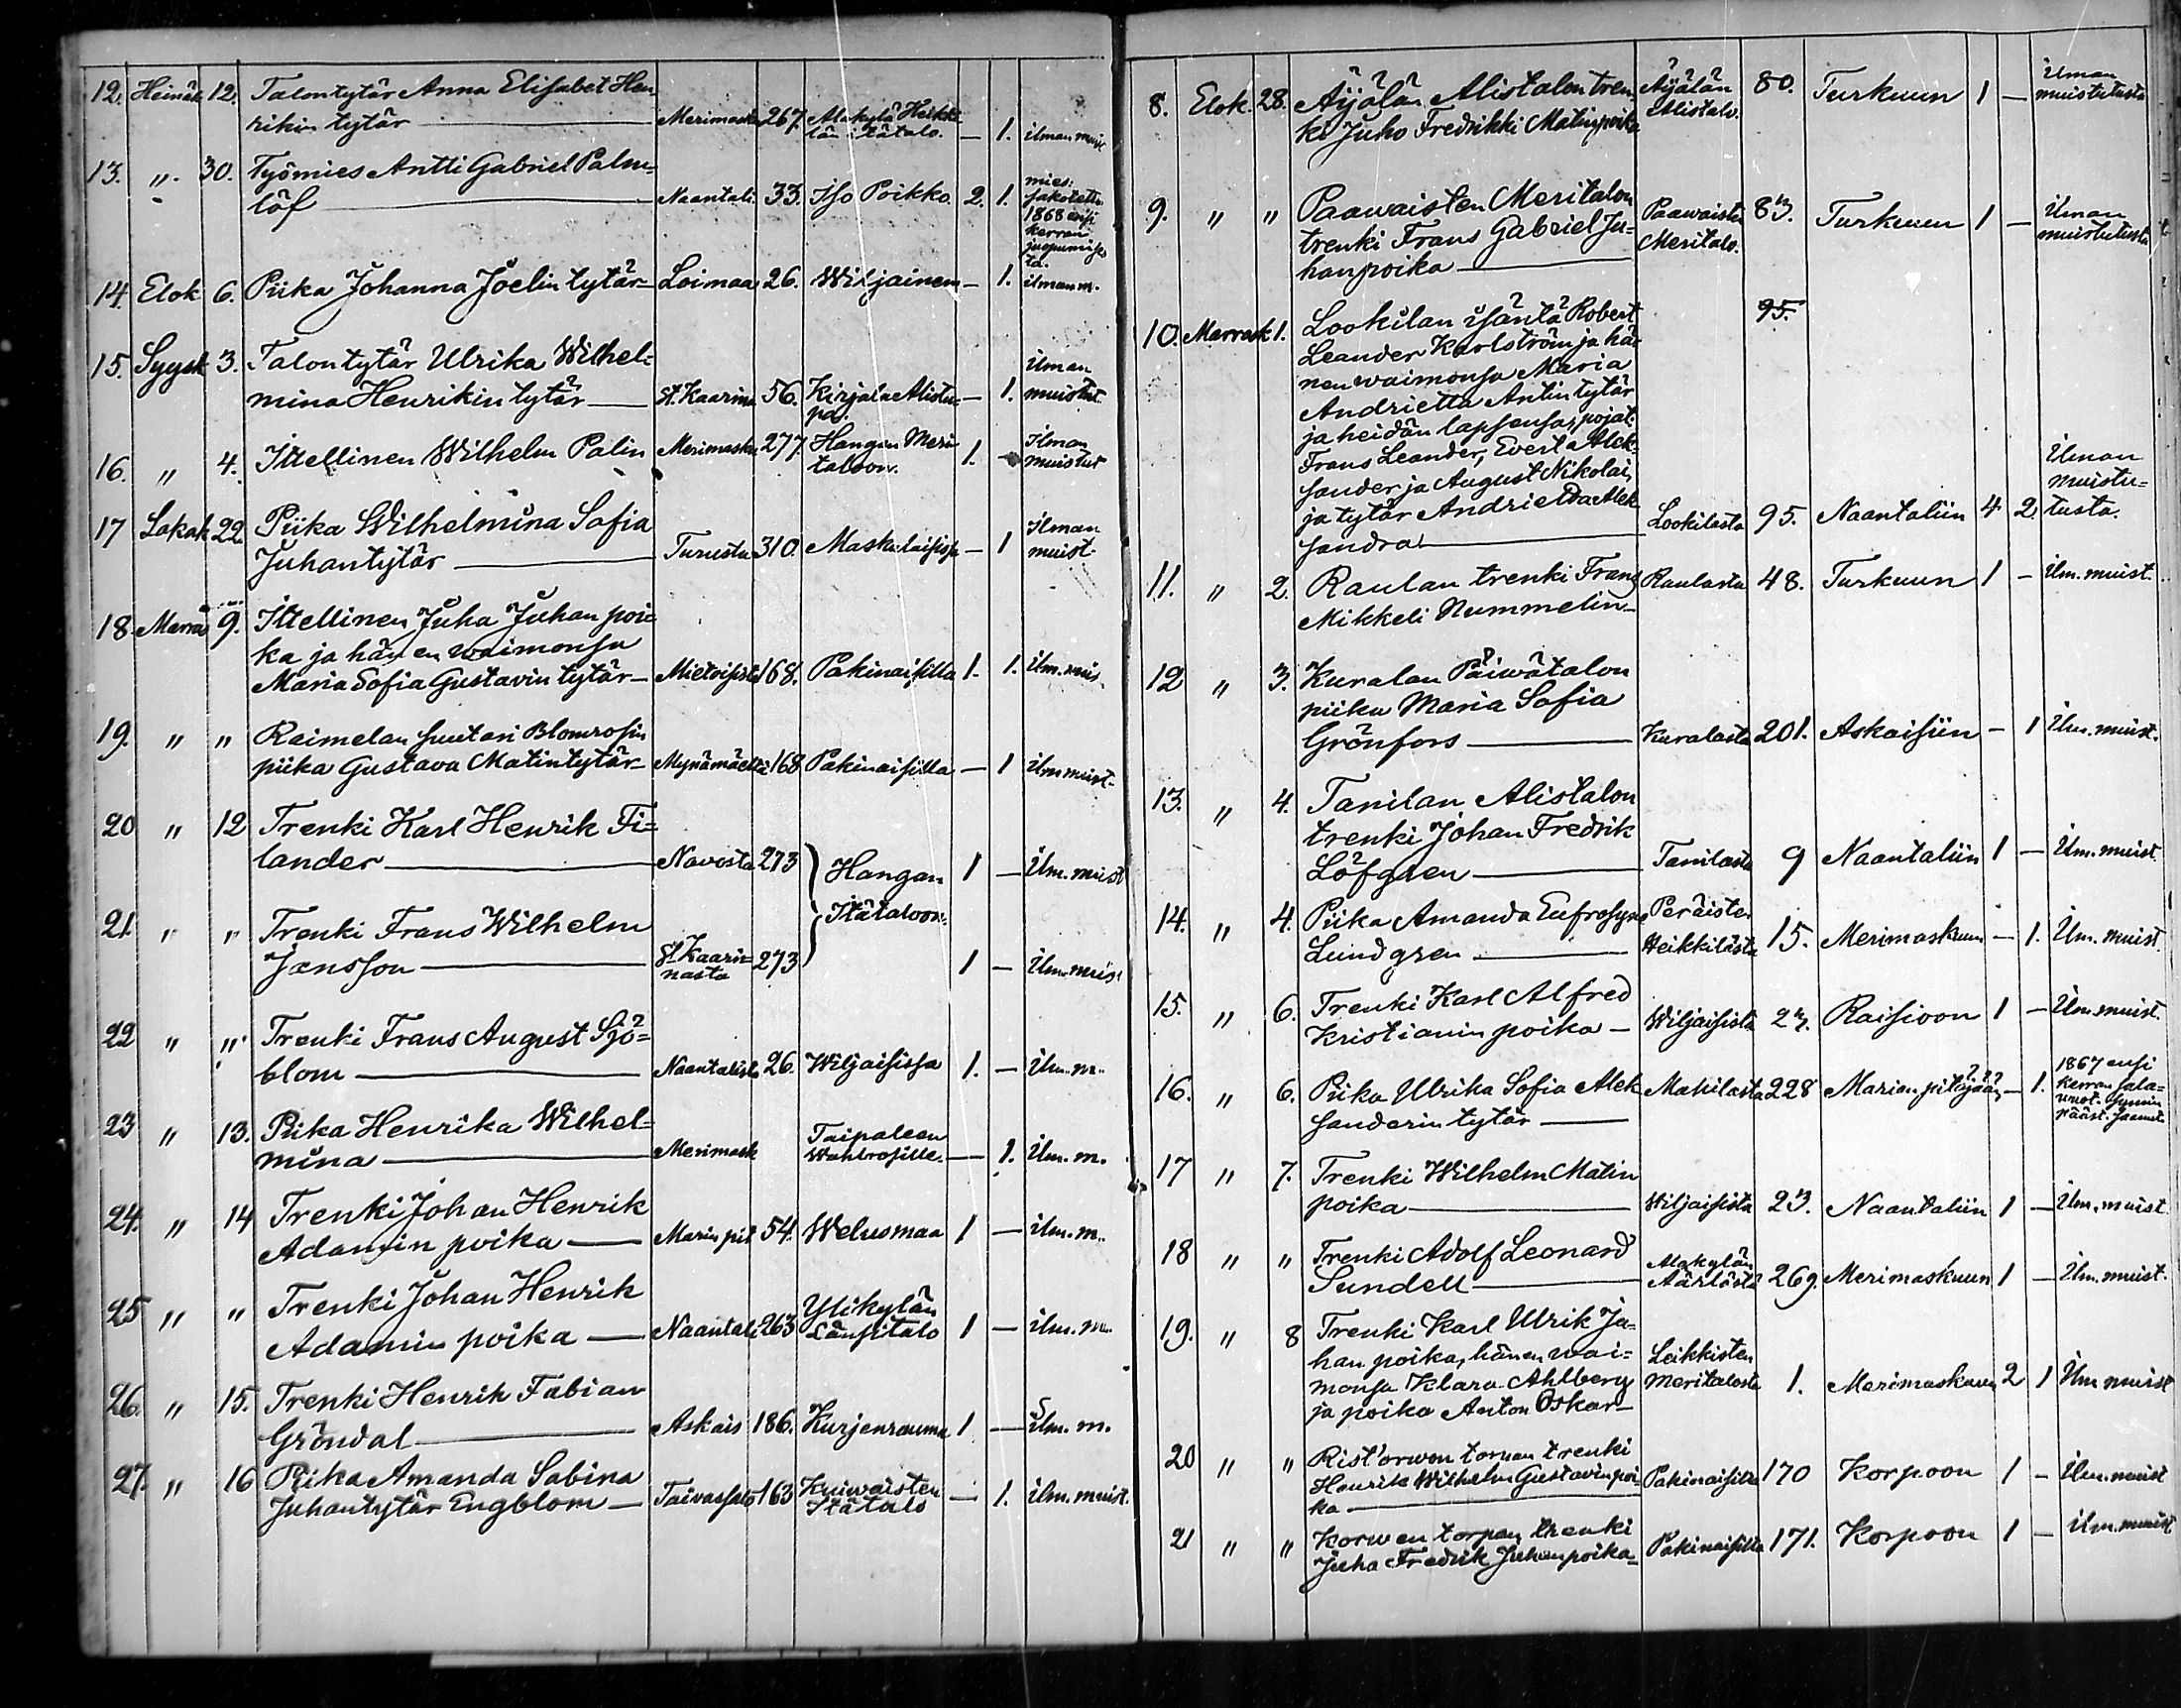 12. Heinäk 12. Talontytär Anna Elisabet Hen-
rikin tytär — Merimasku 267. Alakylä Heikki-
län itätalo. — 1. ilman muist
13. " 30. Työmies Antti Gabriel Palm-
löf — Naantali 33. Iso Poikko. 2. 1. mies.
1868 ensi
kerran
juopumises
ta.
14. Elok 6. Piika Johanna Joelin tytär — Loimaa 26. Wiljainen — 1. ilman m.
15. Syysk 3. Talontytär Ulrika Wilhel-
mina Henrikin tytär — St. Kaarina 56. Kirjala Alistu-
pa. — 1. ilman
muistut
16. " 4. Ittellinen Wilhelm Palin Merimasku 277. Hangan Meri
taloon. 1. — Ilman
muistut
17 Lokak 22. Piika Wilhelmina Sofia
Juhantytär — Turusta 310. Maskulaisissa — 1 Ilman
muist.
18. Marras 9. Ittellinen Juha Juhan poi-
ka ja hänen waimonsa
Maria Sofia Gustavin tytär — Mietoisista 168. Pakinaisilla 1. 1. ilm. muis.
19. " " Raimelan suutari Blomrosin
piika Gustava Matintytär — Mynämäeltä 168 Pakinaisilla — 1 ilm muist.
20 " 12 Trenki Karl Henrik Fi-
lander — Navosta 273 Hangan
Itätaloon. 1 — Ilm. muist
21. " " Trenki Frans Wilhelm
Jansson — St. Kaari-
nasta 273 1 — Ilm. muist
22 " " Trenki Frans August Sjö-
blom — Naantalista 26. Wiljaisissa 1. — ilm. m.
23 " 13. Piika Henrika Wilhel-
mina — Merimask Taipaleen
Wahlrosille. — 1. ilm. m.
24. " 14 Trenki Johan Henrik
Adamin poika — Marin pit 54. Welusmaa 1 — ilm. m.
25 " " Trenki Johan Henrik
Adamin poika — Naantali 263 Ylikylän
Länsitalo 1 — ilm. m.
26. " 15. Trenki Henrik Fabian
Gröndal — Askais 186. Kurjenrauma 1 — ilm. m.
27. " 16 Piika Amanda Sabina
Juhantytär Engblom — Taivassalo 163 Kuiwaisten
Itätalo — 1. ilm. muist.
8. Elok. 28. Äijälän Alistalon tren
ki Juho Fredrikki Matinpoika Äijälän
Alistalo. 80. Turkuun 1 — ilman
muistutusta
9. " " Paawaisten Meritalon
trenki Frans Gabriel Ju-
hanpoika — Paawaista
Meritalo. 83. Turkuun 1 — ilman
muistutusta
10. Marrask 1. Lookilan isäntä Robert 95.
Leander Karlström ja hä-
nen waimonsa Maria
Andrietta Antintytär
ja heidän lapsensa, pojat
Frans Leander, Evert Alek-
sander ja August Nikolai,
ja tytär Andrietta Alek
sandra — Lookilasta 95. Naantaliin 4 2. ilman
muistu-
tusta.
11. " 2. Raulan trenki Frans
Mikkeli Nummelin — Raulasta 48. Turkuun 1 — ilm. muist.
12 " 3. Kuralan Päiwätalon
piika Maria Sofia
Grönfors — Kuralasta 201. Askaisiin — 1 ilm. muist.
13. " 4. Tanilan Alistalon
trenki Johan Fredrik
Löfgren — Tanilasta 9 Naantaliin 1 — ilm. muist.
14. " 4. Piika Amanda Eufrosyne
Lundgren — Peräisten
Heikkilästä 15. Merimaskuun — 1. ilm. muist.
15. " 6. Trenki Karl Alfred
Kristianin poika — Wiljaisista 23. Raisioon 1 — ilm. muist.
16. " 6. Piika Ulrika Sofia Alek
sanderin tytär — Makilasta 228 Marian pitäjään — 1. 1867 ensi
kerran sala-
17 " 7. Trenki Wilhelm Matin
poika — Wiljaisista 23. Naantaliin 1 — ilm. muist.
18 " " Trenki Adolf Leonard
Sundell — Alakylän
Äärlöstä 269. Merimaskuun 1 — ilm. muist.
19. " 8 Trenki Karl Ulrik Ju-
han poika, hänen wai-
monsa Klara Ahlberg
ja poika Anton Oskar — Leikkisten
Meritalosta 1. Merimaskuun 2 1 ilm muist
20 " " Rist'orwen torpan trenki
Henrik Wilhelm Gustavinpoi-
ka — Pakinaisilta 170 Korpoon 1 — ilm. muist
21 " " Korwen torpan trenki
Juha Fredrik Juhanpoika — Pakinaisilta 171. Korpoon 1 — ilm. muist